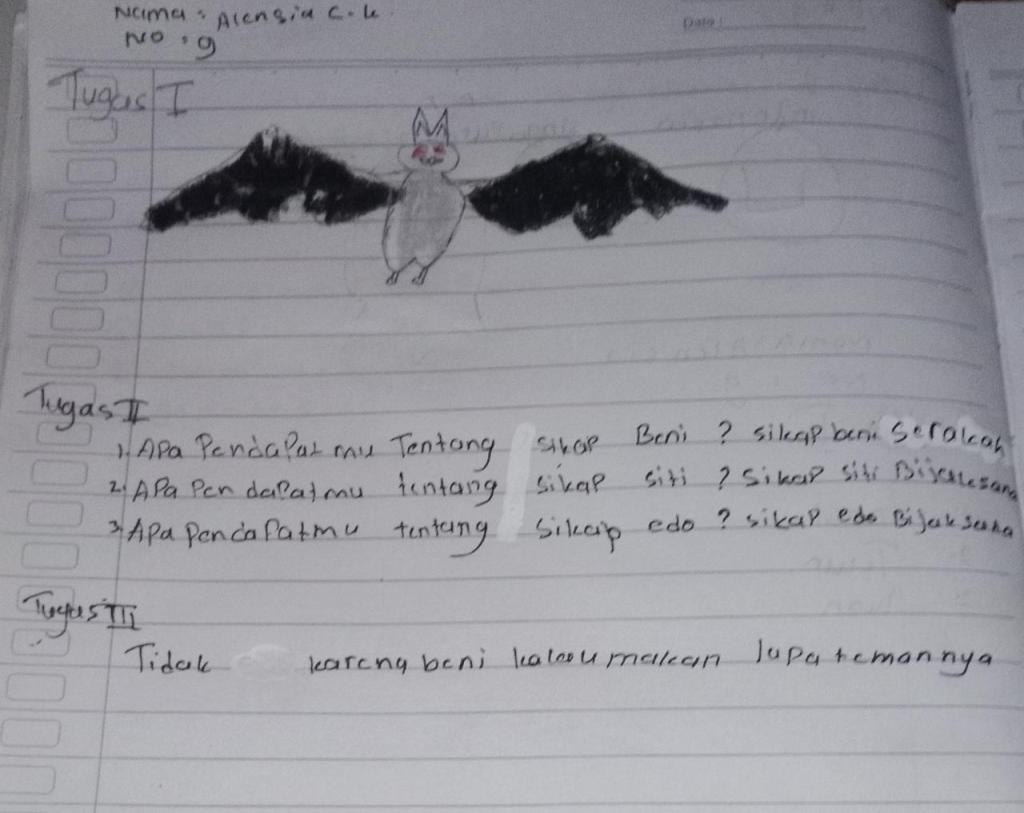 Nama : Alensia C. K.
No : 9
Date :
Tugas I
Tugas II
1. APa PendaPat mu Tentang sikap Beni ? sikap beni Serakah
2. APa Pen daPatmu tentang sikap siti ? Sikap siti Bijaksana
3. APa PendaPatmu tentang Sikap edo ? sikap edo Bijaksana
Tugas III
Tidak karena beni kalau makan lupa temannya